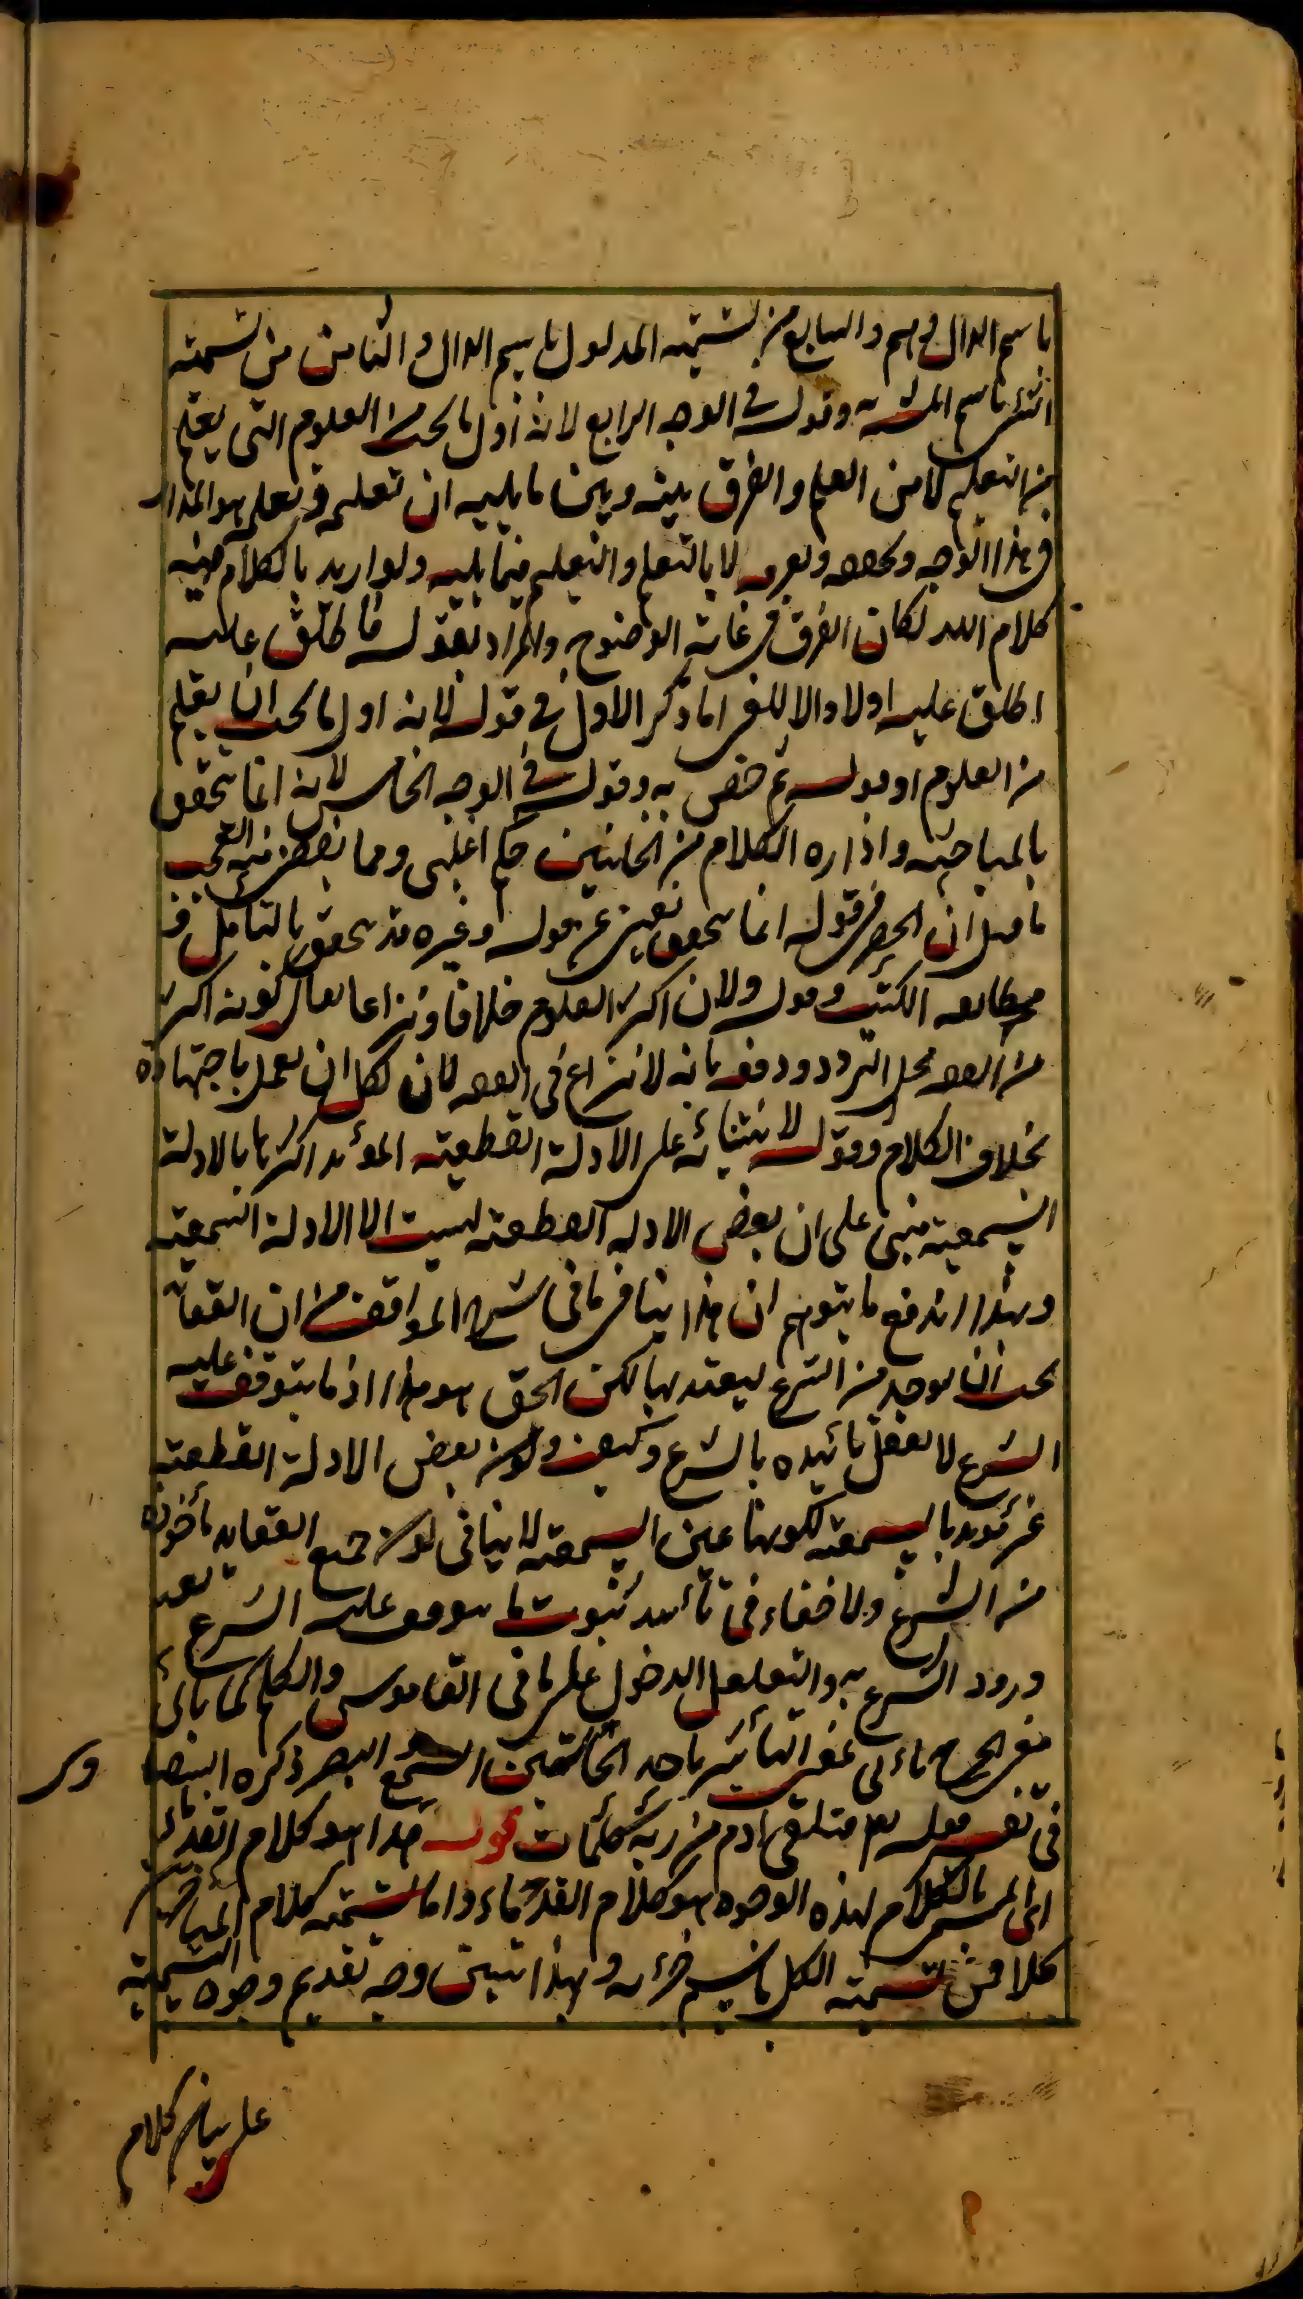 باسم الدال والسابع من تسمية المدلول باسم الدال والثامن من تسمية
الشئ باسم المشبه وقوله في الوجه الرابع لانه اول ما يجب من العلوم التي يعلم
من التعليم لا من العلم والفرق بينه وبين ما يليه ان تعلم وتعلم هو المدار
في هذا الوجه لا بالتعلم والتعليم فيما يليه ولو اريد بالكلام فيه
كلام الله لكان الفرق في غاية الوضوح والمراد بقوله فاطلق عليه
اطلق عليه اولا والا للغى اما ذكر الاول في قوله لانه اول ما يجب ان يعلم
من العلوم او قوله ثم خص به وقوله في الوجه الخامس لانه انما يتحقق
بالمباحثة وادارة الكلام من الجانبين حكم اغلبى ومما يقضى منه العجب
ما قيل ان الحصر في قوله انما يتحقق يغنى عن قوله وغيره قد يتحقق بالتامل و
مطالعه الكتب وقوله ولان اكثر العلوم خلافا ونزاعا يقال كونه اكثر
من الفقه محل التردد ودفع بانه لا نزاع في الفقه لان لكل ان يعمل باجتهاده
بخلاف الكلام وقوله لابتنائه على الادلة القطعية المؤيد اكثرها بالادلة
السمعية مبنى على ان بعض الادلة القطعية ليست الا الادلة السمعية
وبهذا اندفع ما يتوهم ان هذا ينافى ما فى شرح المواقف من ان العقائد
يجب ان يوجد من الشرع ليعتد بها لكن الحق هو هذا اذ ما يتوقف عليه
الشرع لا يعقل تائيده بالشرع وكيف وكون بعض الادلة القطعية
غير مؤيد بالسمعية لكونها عين السمعية لا ينافى كون جميع العقايد مأخوذة
من الشرع ولا خفاء فى تأييد ثبوت ما يتوقف عليه الشرع بعد
ورود الشرع به والتغلغل الدخول على ما فى القاموس والكلم كما يأتى
بمعنى الجرح يأتى بمعنى التأثير باحد الحاستين السمع والبصر ذكره البيضا وى
فى تفسير قوله تعالى فتلقى ادم من ربه كلمات قوله هذا هو كلام القدماء
اى المسمى بالكلام لهذه الوجوه هو كلام القدماء واما تسمية كلام المتأخرين
كلاما فمن تسمية الكل باسم جزئه وبهذا تبين وجه تقديم وجوه التسمية
على بيان كلام